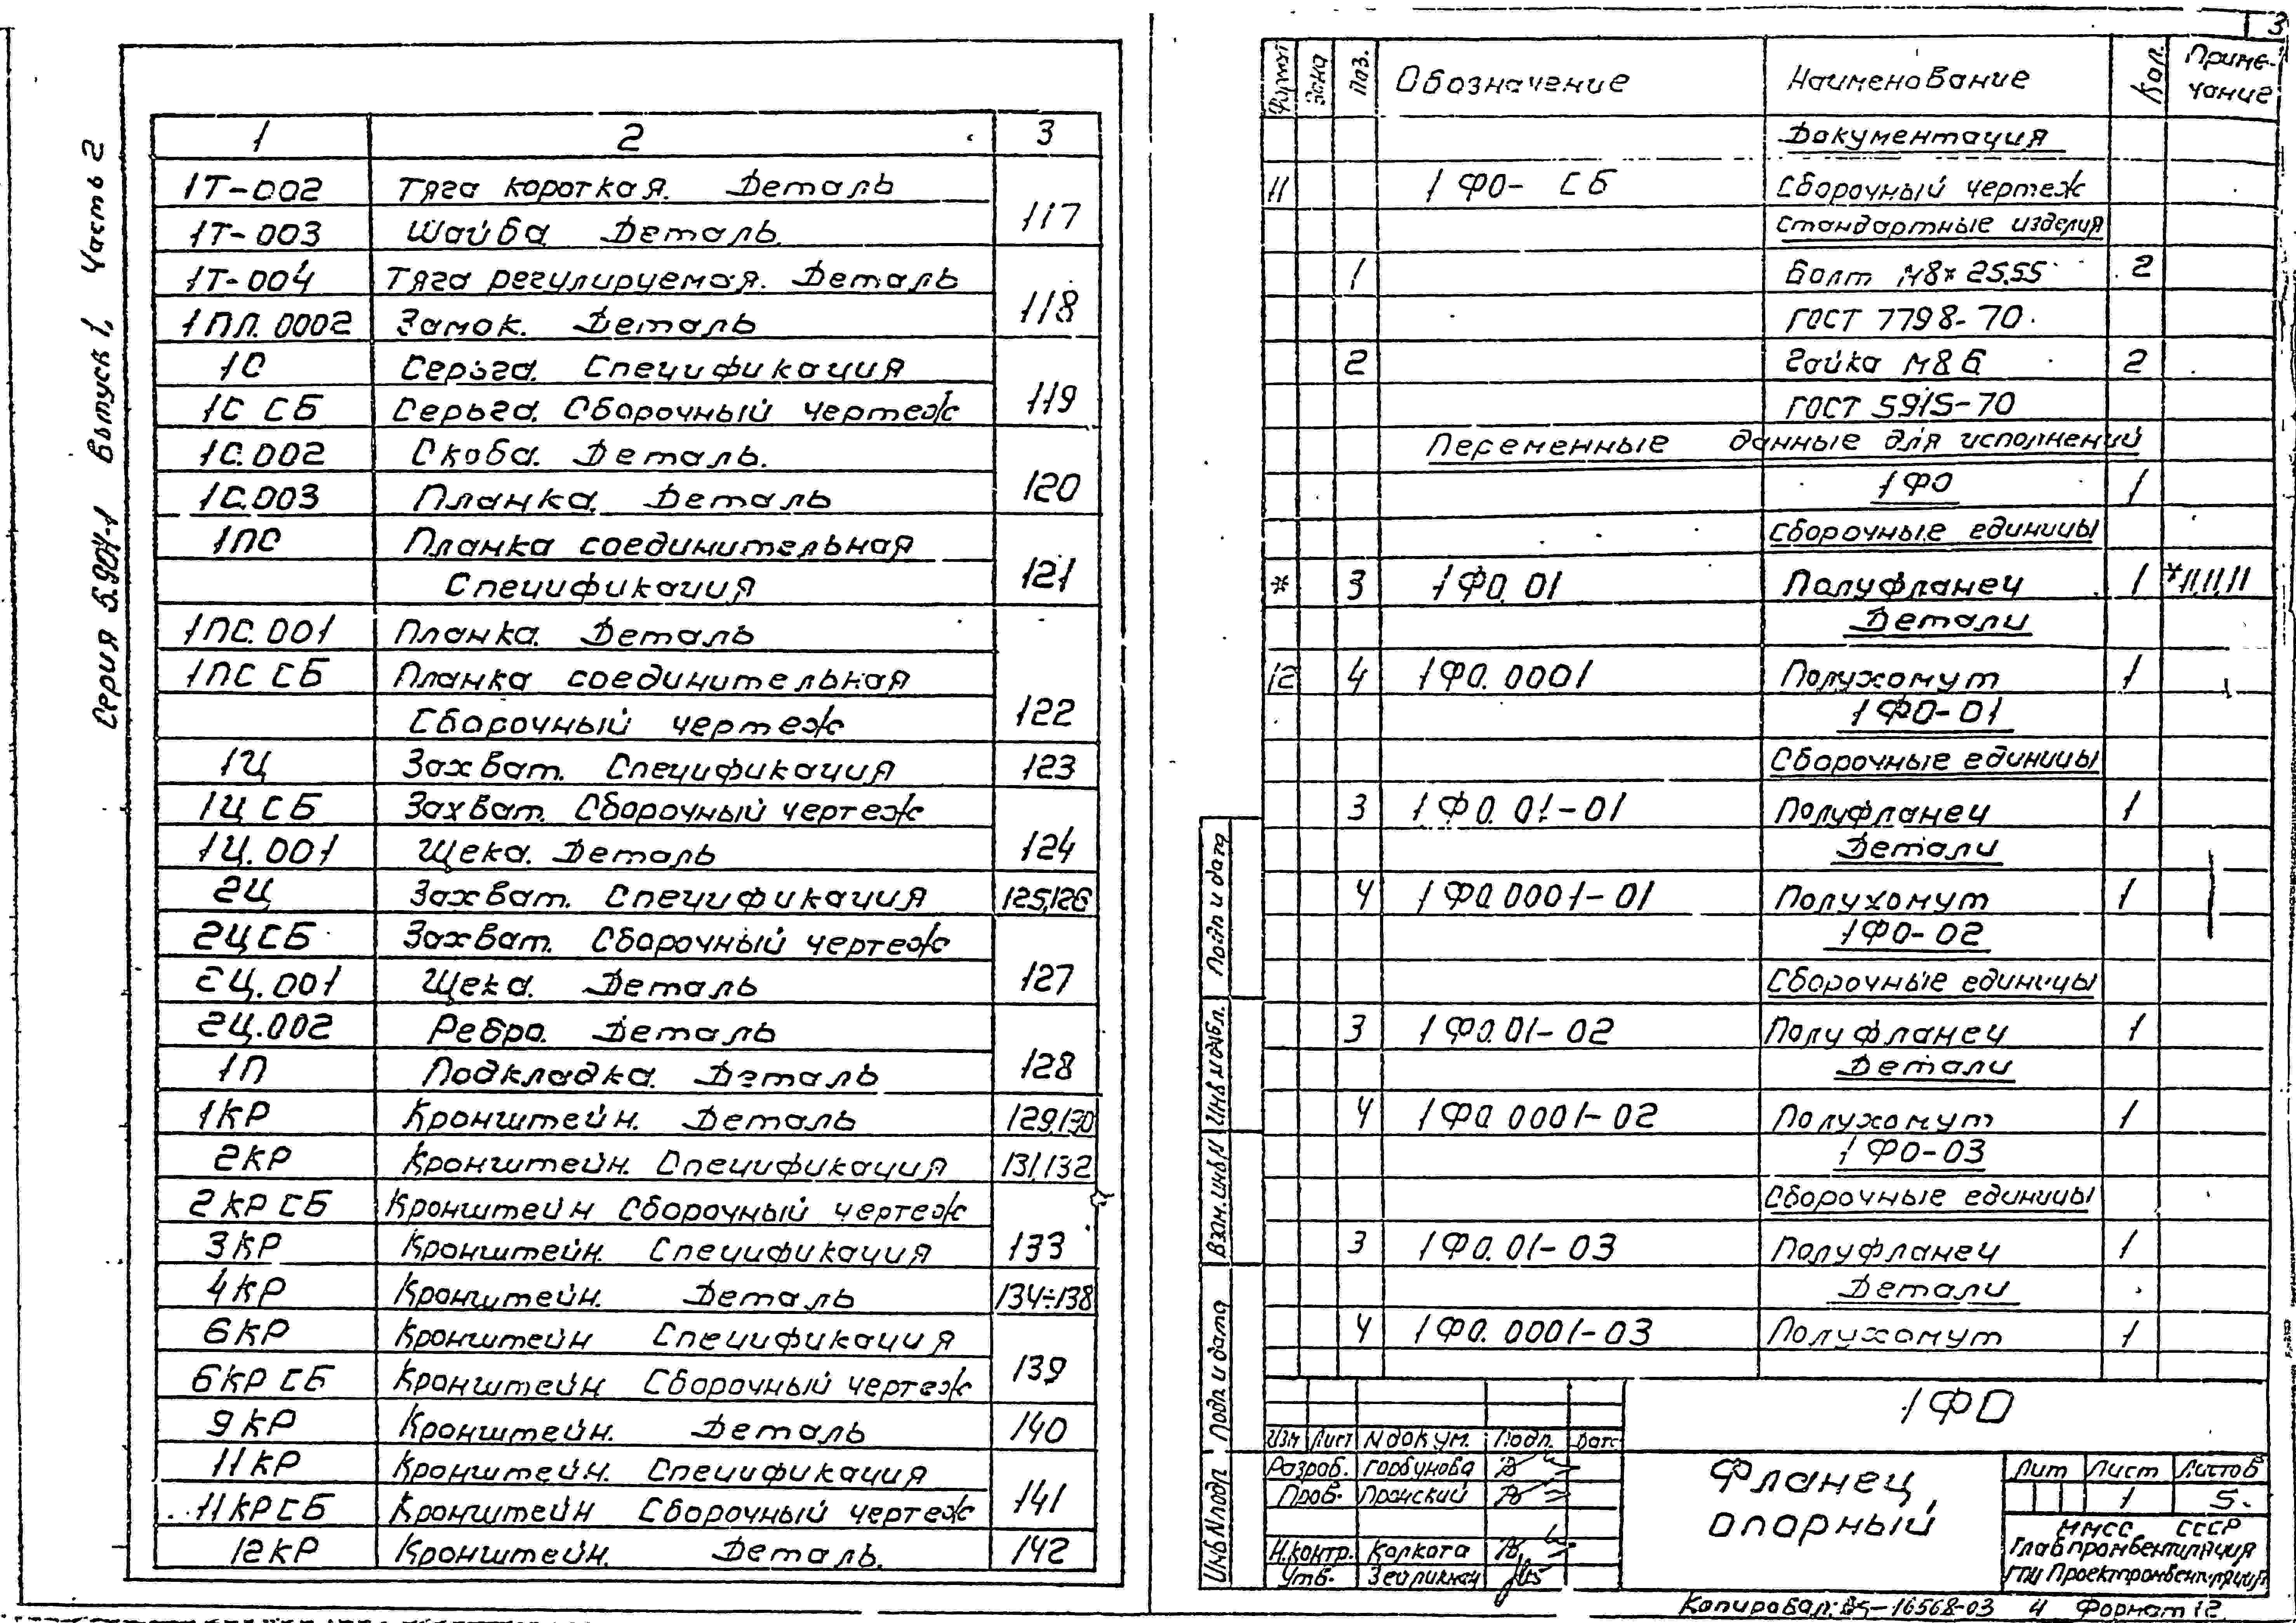 Серия 5.904-1 Выпуск 1, Часть 2
1 2 3
1Т-002 Тяга короткая. Деталь 117
1Т-003 Шайба Деталь.
1Т-004 Тяга регулируемая. Деталь 118
1ПЛ.0002 Замок. Деталь
1С Серьга. Спецификация 119
1С СБ Серьга. Сборочный чертеж
1С.002 Скоба. Деталь. 120
1С.003 Планка. Деталь
1ПС Планка соединительная 121
Спецификация
1ПС.001 Планка. Деталь 122
1ПС СБ Планка соединительная
Сборочный чертеж
1Ц Захват. Спецификация 123
1Ц СБ Захват. Сборочный чертеж 124
1Ц.001 Щека. Деталь
2Ц Захват. Спецификация 125,126
2ЦСБ Захват. Сборочный чертеж 127
2Ц.001 Щека. Деталь
2Ц.002 Ребро. Деталь 128
1П Подкладка. Деталь
1КР Кронштейн. Деталь 129,130
2КР Кронштейн. Спецификация 131,132
2КР СБ Кронштейн Сборочный чертеж 133
3КР Кронштейн. Спецификация
4КР Кронштейн. Деталь 134÷138
6КР Кронштейн Спецификация 139
6КР СБ Кронштейн Сборочный чертеж
9КР Кронштейн. Деталь 140
11КР Кронштейн. Спецификация 141
11КРСБ Кронштейн Сборочный чертеж
12КР Кронштейн. Деталь. 142
3
Формат Зона Поз. Обозначение Наименование Кол. Приме-
чание
Документация
11 1ФО- СБ Сборочный чертеж
Стандартные изделия
1 Болт М8×25.55 2
ГОСТ 7798-70.
2 Гайка М8 6 2
ГОСТ 5915-70
Переменные данные для исполнений
1ФО 1
Сборочные единицы
* 3 1ФО.01 Полуфланец 1 *11,11,11
Детали
12 4 1ФО.0001 Полухомут 1
1ФО-01
Сборочные единицы
3 1ФО.01-01 Полуфланец 1
Детали
4 1ФО.0001-01 Полухомут 1
1ФО-02
Сборочные единицы
3 1ФО.01-02 Полуфланец 1
Детали
4 1ФО.0001-02 Полухомут 1
1ФО-03
Сборочные единицы
3 1ФО.01-03 Полуфланец 1
Детали
4 1ФО.0001-03 Полухомут 1
Подп и дата
Инв №дубл.
Взам.инв№
Подп и дата
Инв№подл
1ФО
Изм Лист №докум. Подп. Дата
Разраб. Горбунова
Пров. Пронский
Н.контр. Колкота
Утв.
Фланец,
опорный
Лит Лист Листов
1 5.
ММСС СССР
Главпромвентиляция
ГПИ Проектпромвентиляция
Копировал: 16568-03 4 Формат 12